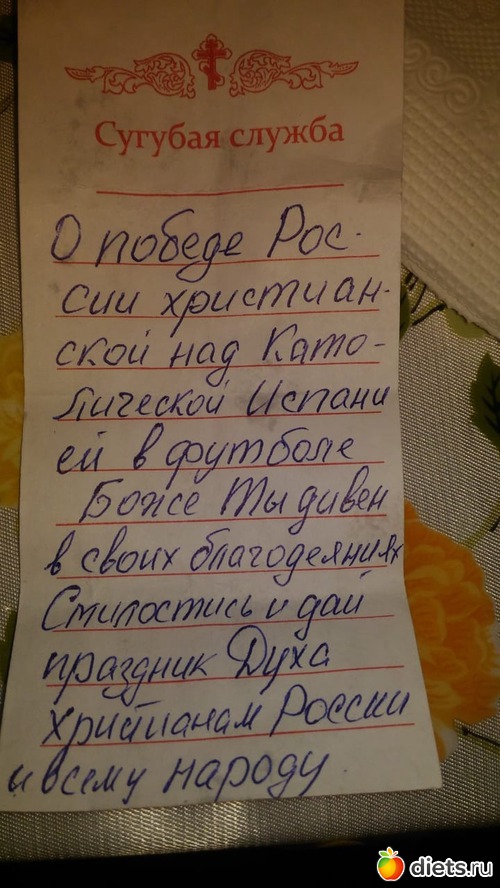 Сугубая служба
О победе Рос-
сии христиан-
ской над Като-
лической Испани
ей в футболе
Боже Ты дивен
в своих благодеяниях
Смилостись и дай
праздник Духа
хрийианам России
и всему народу
diets.ru